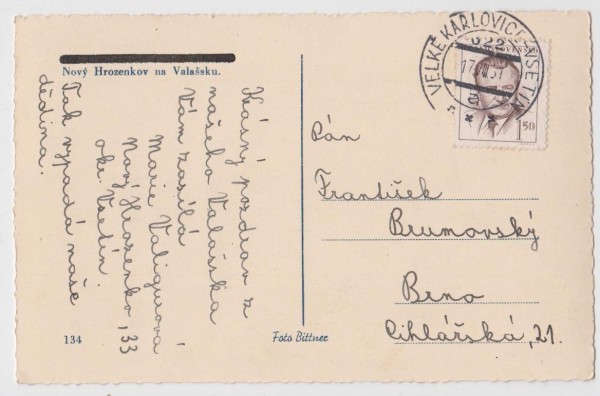 Nový Hrozenkov na Valašsku.
Krásný pozdrav z
našeho Valašska
Vám zasílá
Marie Valigurová
Nový Hrozenko, 33
okr. Vsetín.
Tak vypadá naše
dědina.
134
Foto Bittner
VELKÉ KARLOVICE
VSETÍN
1.50
Pán
František
Brumovský
Brno
Cihlářská, 21.